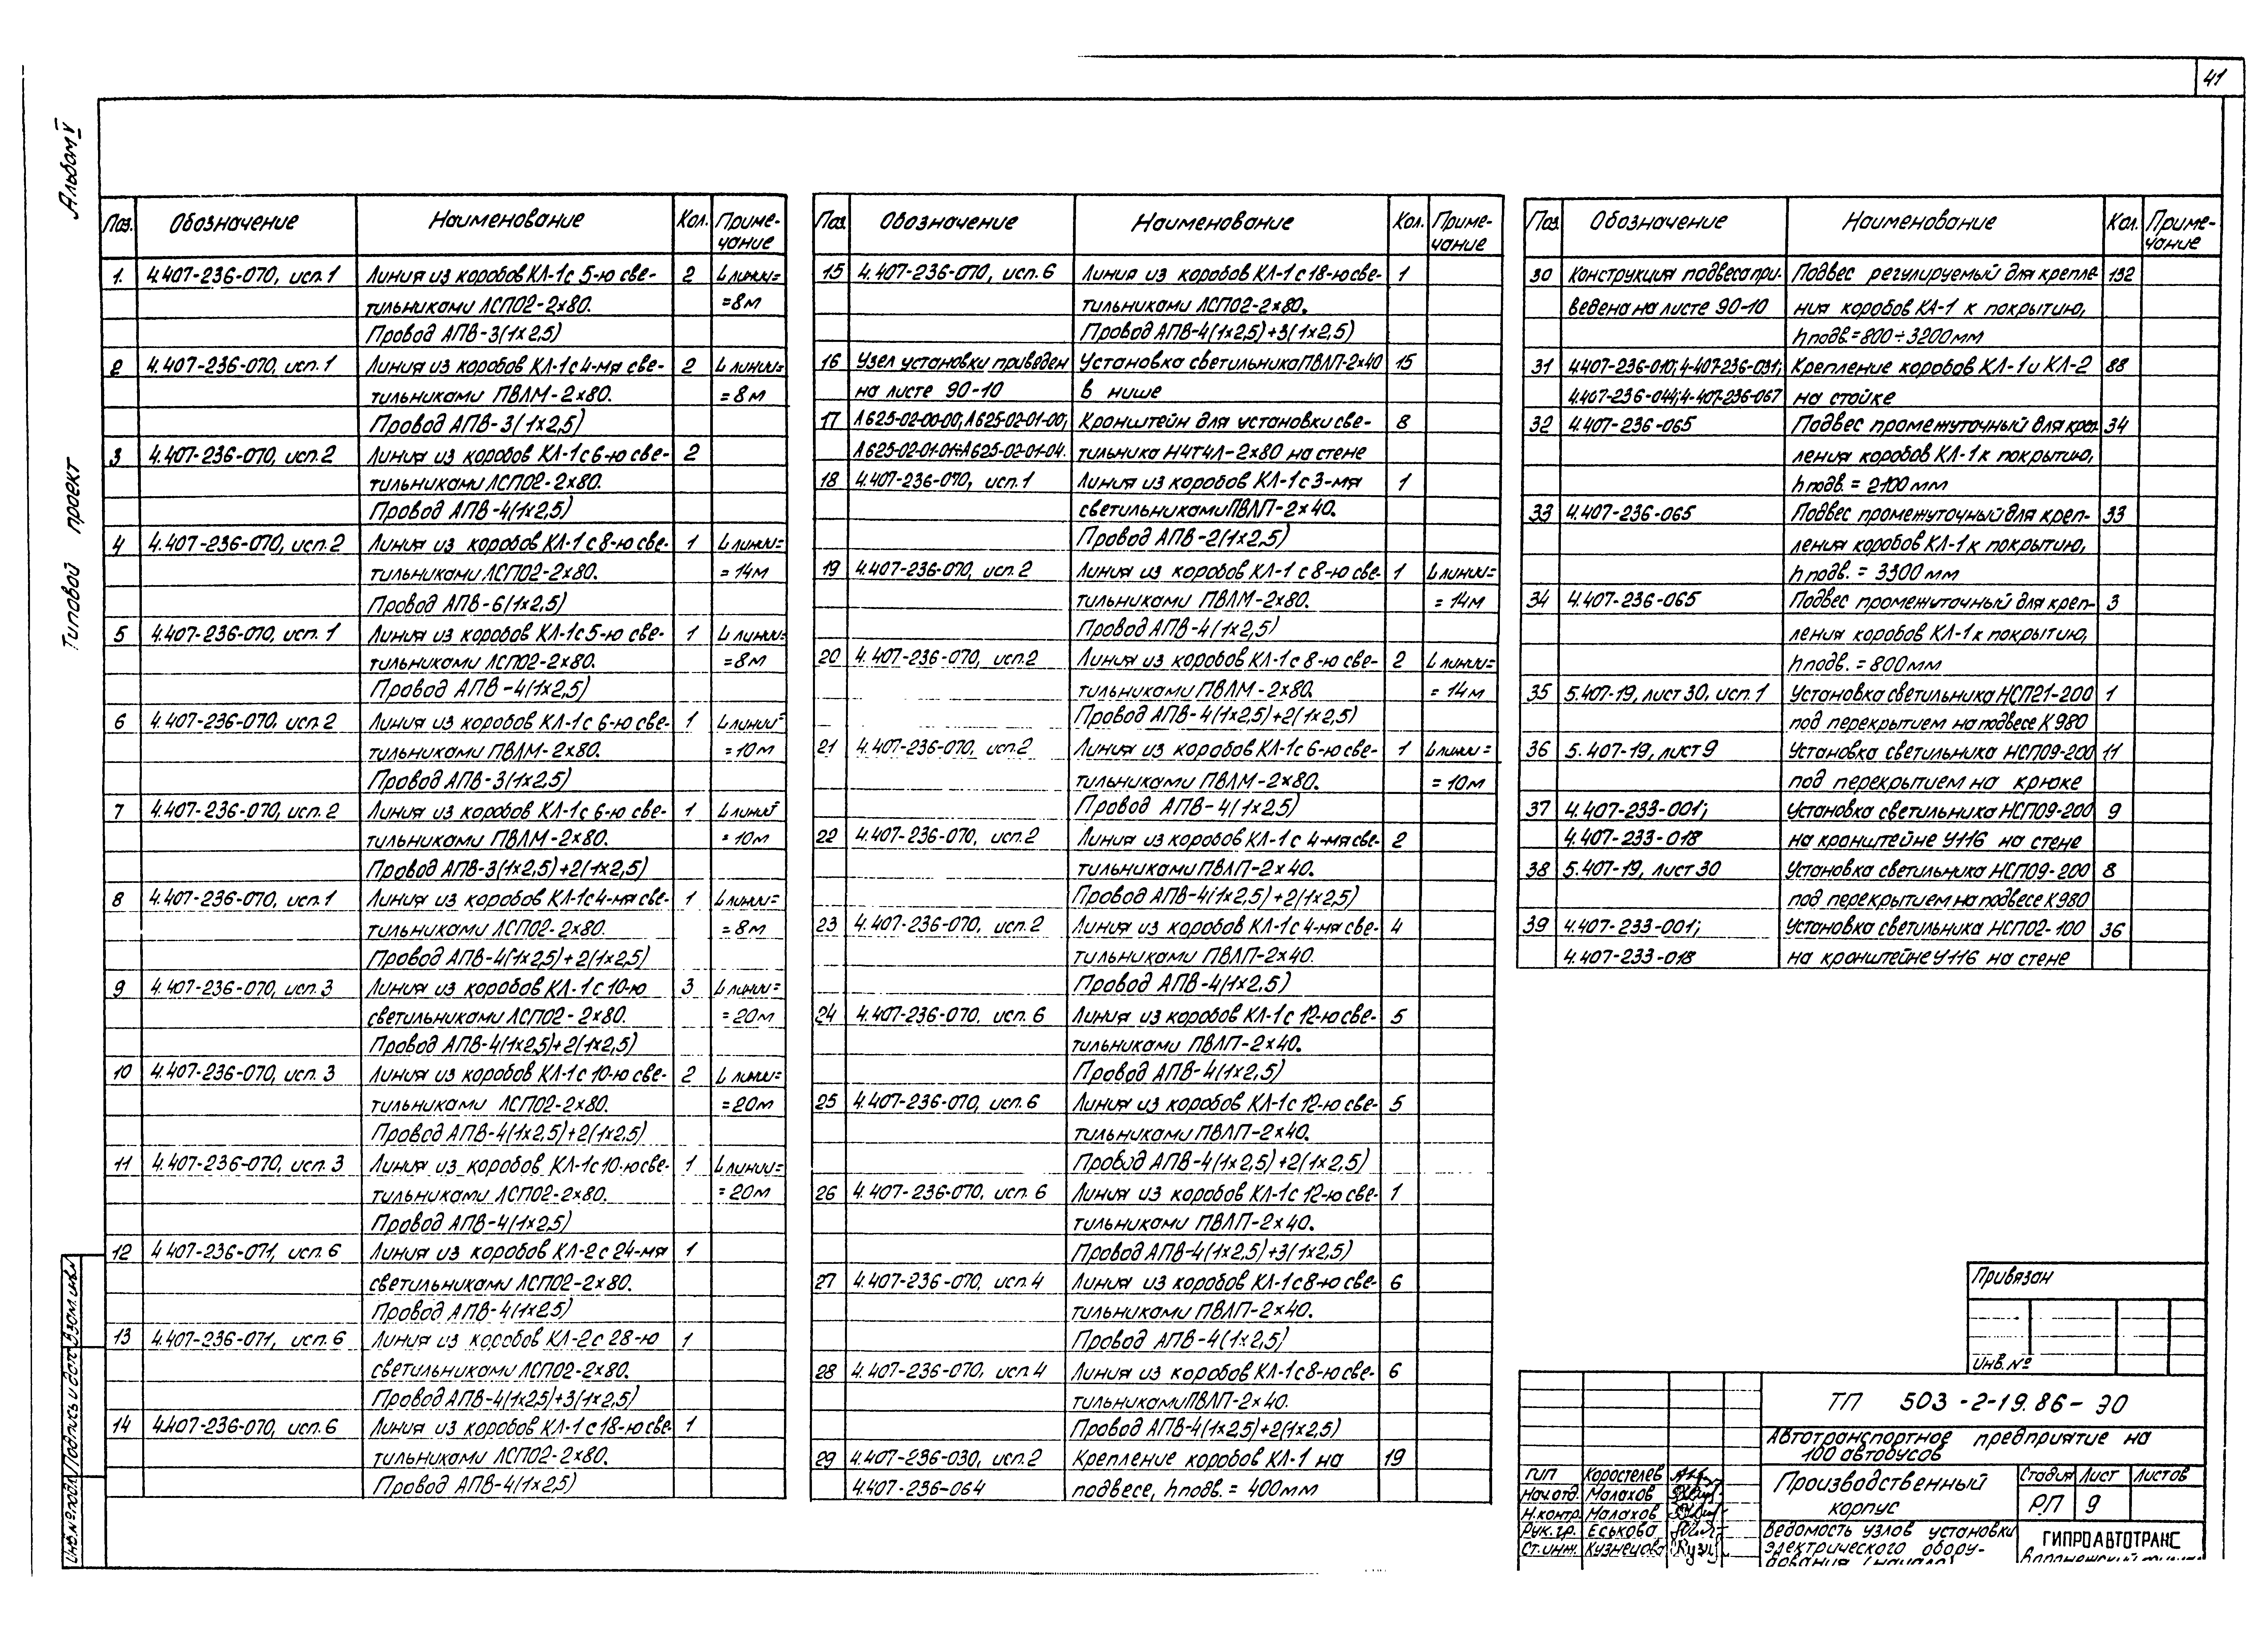 41
Альбом V
Типовой проект
Поз. Обозначение Наименование Кол. Приме-
чание
1. 4.407-236-070, исп. 1 Линия из коробов КЛ-1 с 5-ю све- 2 L линии=
тильниками ЛСП02-2х80. =8м
Провод АПВ-3(1х2,5)
2 4.407-236-070, исп. 1 Линия из коробов КЛ-1 с 4-мя све- 2 L линии=
тильниками ПВЛМ-2х80. =8м
Провод АПВ-3(1х2,5)
3 4.407-236-070, исп. 2 Линия из коробов КЛ-1 с 6-ю све- 2
тильниками ЛСП02-2х80.
Провод АПВ-4(1х2,5)
4 4.407-236-070, исп. 2 Линия из коробов КЛ-1 с 8-ю све- 1 L линии=
тильниками ЛСП02-2х80. =14м
Провод АПВ-6(1х2,5)
5 4.407-236-070, исп. 1 Линия из коробов КЛ-1 с 5-ю све- 1 L линии=
тильниками ЛСП02-2х80. =8м
Провод АПВ-4(1х2,5)
6 4.407-236-070, исп. 2 Линия из коробов КЛ-1 с 6-ю све- 1 L линии=
тильниками ПВЛМ-2х80. =10м
Провод АПВ-3(1х2,5)
7 4.407-236-070, исп. 2 Линия из коробов КЛ-1 с 6-ю све- 1 L линии=
тильниками ПВЛМ-2х80. =10м
Провод АПВ-3(1х2,5)+2(1х2,5)
8 4.407-236-070, исп. 1 Линия из коробов КЛ-1 с 4-мя све- 1 L линии=
тильниками ЛСП02-2х80. =8м
Провод АПВ-4(1х2,5)+2(1х2,5)
9 4.407-236-070, исп. 3 Линия из коробов КЛ-1 с 10-ю 3 L линии=
светильниками ЛСП02-2х80. =20м
Провод АПВ-4(1х2,5)+2(1х2,5)
10 4.407-236-070, исп. 3 Линия из коробов КЛ-1 с 10-ю све- 2 L линии=
тильниками ЛСП02-2х80. =20м
Провод АПВ-4(1х2,5)+2(1х2,5)
11 4.407-236-070, исп. 3 Линия из коробов КЛ-1 с 10-ю све- 1 L линии=
тильниками ЛСП02-2х80. =20м
Провод АПВ-4(1х2,5)
12 4.407-236-071, исп. 6 Линия из коробов КЛ-2 с 24-мя 1
светильниками ЛСП02-2х80.
Провод АПВ-4(1х2,5)
13 4.407-236-071, исп. 6 Линия из коробов КЛ-2 с 28-ю 1
светильниками ЛСП02-2х80.
Провод АПВ-4(1х2,5)+3(1х2,5)
14 4.407-236-070, исп. 6 Линия из коробов КЛ-1 с 18-ю све- 1
тильниками ЛСП02-2х80.
Провод АПВ-4(1х2,5)
Поз. Обозначение Наименование Кол. Приме-
чание
15 4.407-236-070, исп. 6 Линия из коробов КЛ-1 с 18-ю све- 1
тильниками ЛСП02-2х80.
Провод АПВ-4(1х2,5)+3(1х2,5)
16 Узел установки приведен Установка светильника ПВЛП-2х40 15
на листе 90-10 в нише
17 А625-02-00-00; А625-02-01-00; Кронштейн для установки све- 8
А625-02-01-01÷А625-02-01-04. тильника Н4Т4Л-2х80 на стене
18 4.407-236-070, исп. 1 Линия из коробов КЛ-1 с 3-мя 1
светильниками ПВЛП-2х40.
Провод АПВ-2(1х2,5)
19 4.407-236-070, исп. 2 Линия из коробов КЛ-1 с 8-ю све- 1 L линии=
тильниками ПВЛМ-2х80. =14м
Провод АПВ-4(1х2,5)
20 4.407-236-070, исп. 2 Линия из коробов КЛ-1 с 8-ю све- 2 L линии=
тильниками ПВЛМ-2х80. =14м
Провод АПВ-4(1х2,5)+2(1х2,5)
21 4.407-236-070, исп. 2 Линия из коробов КЛ-1 с 6-ю све- 1 L линии=
тильниками ПВЛМ-2х80. =10м
Провод АПВ-4(1х2,5)
22 4.407-236-070, исп. 2 Линия из коробов КЛ-1 с 4-мя све- 2
тильниками ПВЛП-2х40.
Провод АПВ-4(1х2,5)+2(1х2,5)
23 4.407-236-070, исп. 2 Линия из коробов КЛ-1 с 4-мя све- 4
тильниками ПВЛП-2х40.
Провод АПВ-4(1х2,5)
24 4.407-236-070, исп. 6 Линия из коробов КЛ-1 с 12-ю све- 5
тильниками ПВЛП-2х40.
Провод АПВ-4(1х2,5)
25 4.407-236-070, исп. 6 Линия из коробов КЛ-1 с 12-ю све- 5
тильниками ПВЛП-2х40.
Провод АПВ-4(1х2,5)+2(1х2,5)
26 4.407-236-070, исп. 6 Линия из коробов КЛ-1 с 12-ю све- 1
тильниками ПВЛП-2х40.
Провод АПВ-4(1х2,5)+3(1х2,5)
27 4.407-236-070, исп. 4 Линия из коробов КЛ-1 с 8-ю све- 6
тильниками ПВЛП-2х40.
Провод АПВ-4(1х2,5)
28 4.407-236-070, исп. 4 Линия из коробов КЛ-1 с 8-ю све- 6
тильниками ПВЛП-2х40.
Провод АПВ-4(1х2,5)+2(1х2,5)
29 4.407-236-030, исп. 2 Крепление коробов КЛ-1 на 19
4.407-236-064 подвесе, h подв. = 400мм
Поз. Обозначение Наименование Кол. Приме-
чание
30 Конструкция подвеса при- Подвес регулируемый для крепле- 132
ведена на листе 90-10 ния коробов КЛ-1 к покрытию,
h подв.=800÷3200мм
31 4.407-236-010; 4-407-236-031; Крепление коробов КЛ-1 и КЛ-2 88
4.407-236-044; 4-407-236-067 на стойке
32 4.407-236-065 Подвес промежуточный для креп- 34
ления коробов КЛ-1 к покрытию,
h подв. = 2100мм
33 4.407-236-065 Подвес промежуточный для креп- 33
ления коробов КЛ-1 к покрытию,
h подв. = 3300мм
34 4.407-236-065 Подвес промежуточный для креп- 3
ления коробов КЛ-1 к покрытию,
h подв. = 800мм
35 5.407-19, лист 30, исп. 1 Установка светильника НСП21-200 1
под перекрытием на подвесе К980
36 5.407-19, лист 9 Установка светильника НСП09-200 11
под перекрытием на крюке
37 4.407-233-001; Установка светильника НСП09-200 9
4.407-233-018 на кронштейне У116 на стене
38 5.407-19, лист 30 Установка светильника НСП09-200 8
под перекрытием на подвесе К980
39 4.407-233-001; Установка светильника НСП02-100 36
4.407-233-018 на кронштейне У116 на стене
Привязан
Инв. №
ТП 503-2-19.86-ЭО
Автотранспортное предприятие на
100 автобусов
ГИП Коростелев
Нач.отд. Малахов
Н.контр. Малахов
Рук.гр. Еськова
Ст.инж. Кузнецова
Производственный
корпус
Стадия Лист Листов
РП 9
Ведомость узлов установки
электрического обору-
дования (начало)
ГИПРОАВТОТРАНС
Воронежский филиал
Инв.№подл. Подпись и дата Взам.инв.№